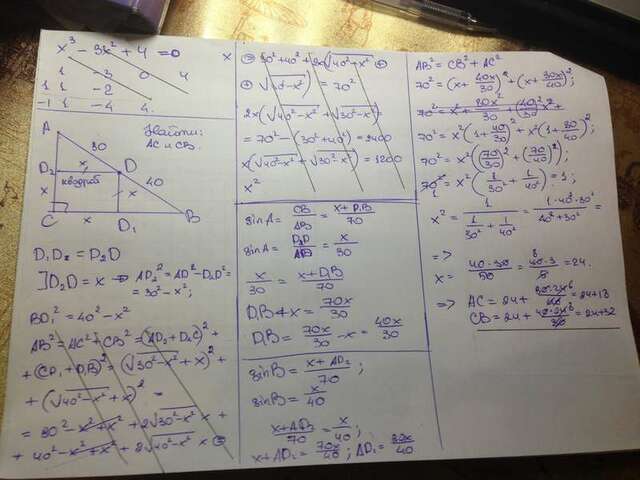 x³ - 3x² + 4 = 0
1 -3 0 4
1 1 -2
-1 1 -4 4
Найти:
AC и CB.
A
30
D₂ x D
квадрат
x x 40
C x D₁ B
D₁D₂ = D₂D
]D₂D = x ⇒ AD₂² = AD² - D₂D² =
= 30² - x²;
BD₁² = 40² - x²
AB² = AC² + CB² = (AD₂ + D₂C)² +
+ (CD₁ + D₁B)² = (√30² - x² + x)² +
+ (√40² - x² + x)² =
= 30² - x² + x² + 2√30² - x² x +
+ 40² - x² + x² + 2√40² - x² x ⊜
x
⊜ 30² + 40² + 2x(√40² - x² ⊕
⊕ √30² - x²) = 70²
2x(√40² - x² + √30² - x²) =
= 70² - (30² + 40²) = 2400
x(√40² - x² + √30² - x²) = 1200
x²
sin A = CB/AB = x + D₁B/70
sin A = D₂D/AD = x/30
x/30 = x + D₁B/70
D₁B + x = 70x/30
D₁B = 70x/30 - x = 40x/30
sin B = x + AD₂/70;
sin B = x/40
x + AD₂/70 = x/40;
x + AD₂ = 70x/40; AD₂ = 30x/40
AB² = CB² + AC²
70² = (x + 40x/30)² + (x + 30x/40)²;
70² = x²(1 + 40/30)² + x²(1 + 30/40)²;
70² = x²(70/30)² + (70/40)²;
x²(1/30² + 1/40²) = 1;
x² = 1/1/30² + 1/40² = 1·40²·30²/40² + 30² =
=>
x = 40·30/50 = 40·3/5 = 24.
=> AC = 24 + = 24 + 18
CB = 24 + = 24 + 32